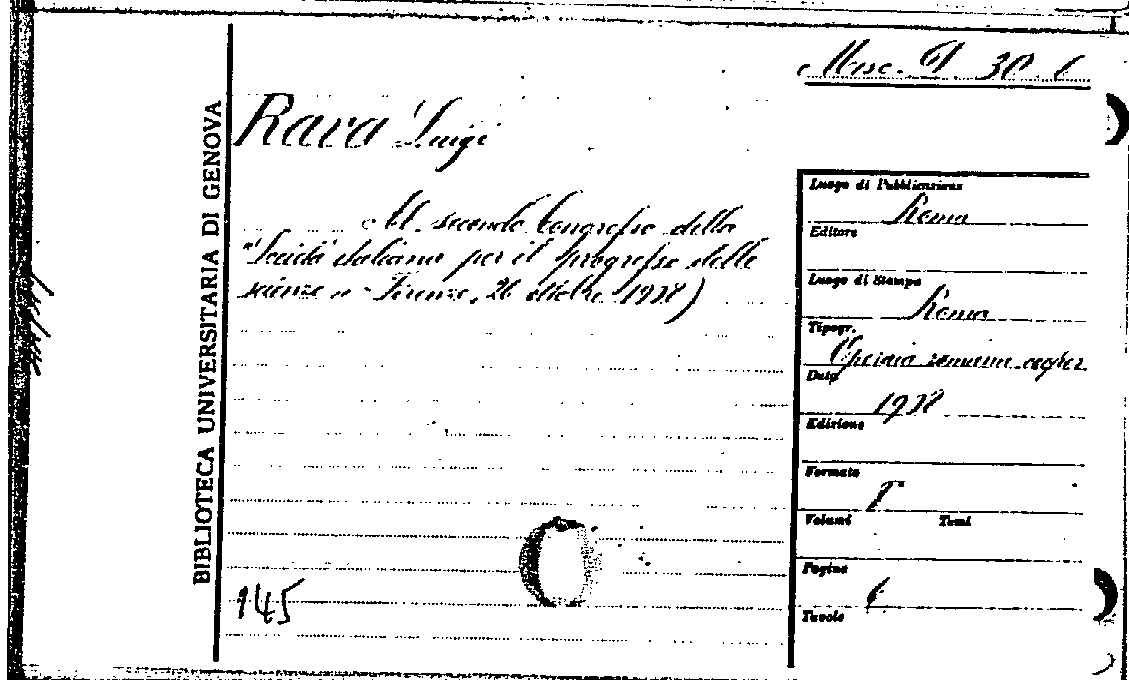 Misc. A. 30. 6
Rava Luigi
Al secondo Congresso della
"Società italiana per il progresso delle
scienze" - Firenze, 26 ottobre 1908)
BIBLIOTECA UNIVERSITARIA DI GENOVA
Luogo di Pubblicazione
Roma
Editore
Luogo di Stampa
Roma
Tipogr.
Operaia romana cooper.
Data
1908
Edizione
Formato
8°
Volumi Tomi
Pagine
6
Tavole
145